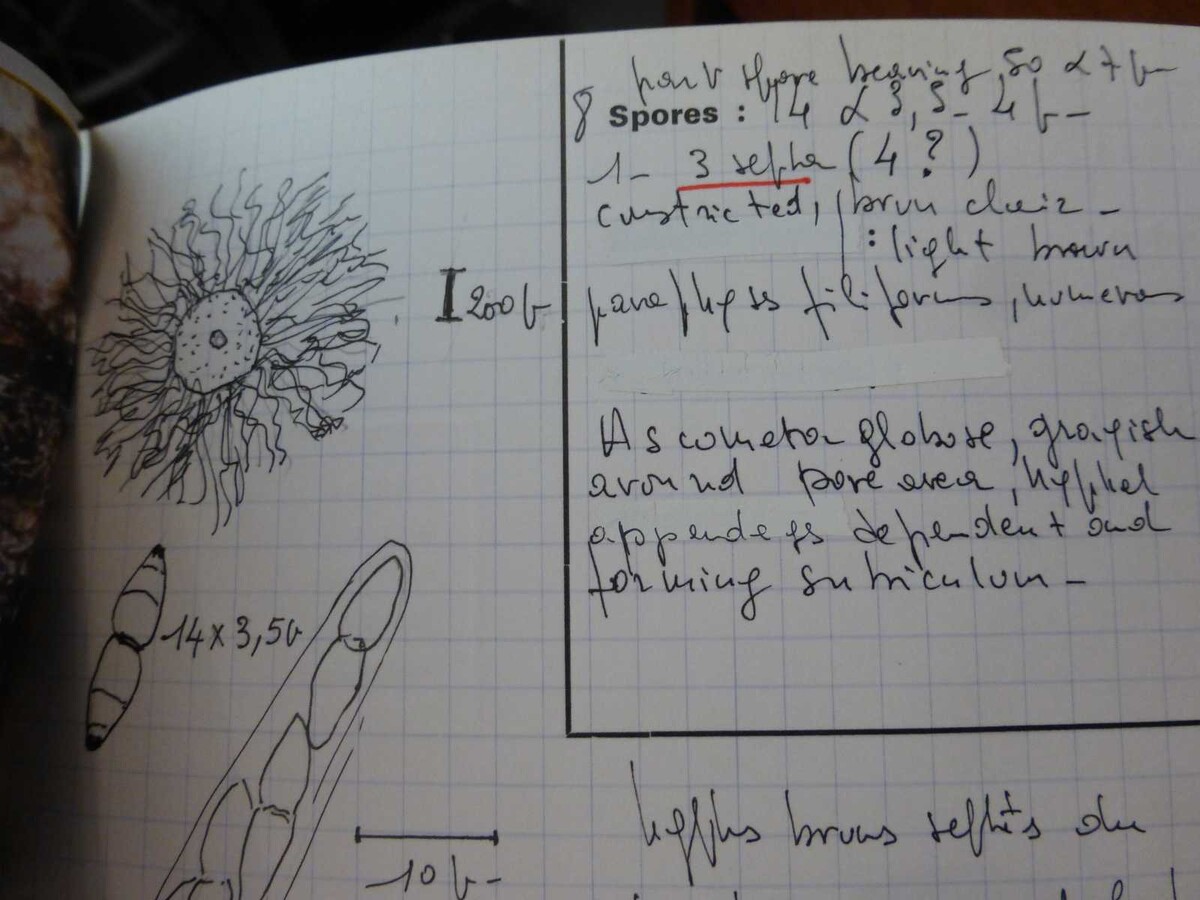 part spore bearing, 50 x 7 µ
8 Spores : 14 x 3,5-4 µ -
1- 3 septa (4 ?)
constricted, brun clair -
: light brown
paraphyses filiforms, numerous
Ascomata globose, grayish
around pore area, hyphal
appendages dependent and
forming subiculum -
200 µ
14 x 3,5 µ
10 µ -
hyphes brunes septés du